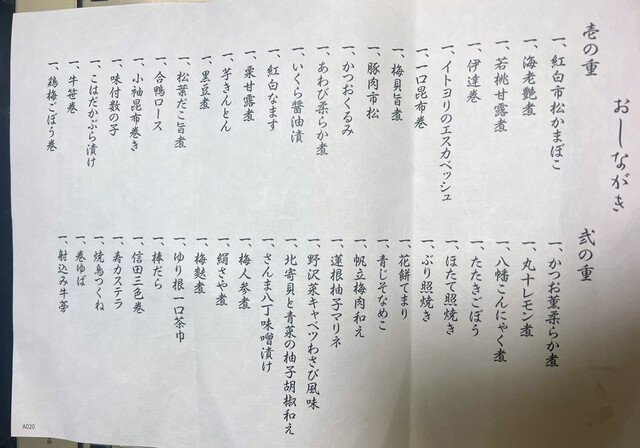 おしながき
壱の重
一、紅白市松かまぼこ
一、海老艶煮
一、若桃甘露煮
一、伊達巻
一、イトヨリのエスカベッシュ
一、一口昆布巻
一、梅貝旨煮
一、豚肉市松
一、かつおくるみ
一、あわび柔らか煮
一、いくら醤油漬
一、紅白なます
一、栗甘露煮
一、芋きんとん
一、黒豆煮
一、松葉だこ旨煮
一、合鴨ロース
一、小袖昆布巻き
一、味付数の子
一、こはだかぶら漬け
一、牛笹巻
一、鶏梅ごぼう巻
弐の重
一、かつお薫柔らか煮
一、丸十レモン煮
一、八幡こんにゃく煮
一、たたきごぼう
一、ほたて照焼き
一、ぶり照焼き
一、花餅てまり
一、青じそなめこ
一、帆立梅肉和え
一、蓮根柚子マリネ
一、野沢菜キャベツわさび風味
一、北寄貝と青菜の柚子胡椒和え
一、さんま八丁味噌漬け
一、梅人参煮
一、絹さや煮
一、梅麩煮
一、ゆり根一口茶巾
一、棒だら
一、信田三色巻
一、寿カステラ
一、焼鳥つくね
一、巻ゆば
一、射込み牛蒡
A020